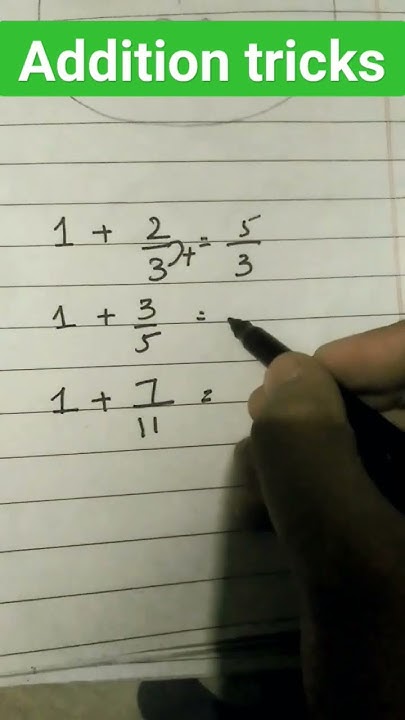 Addition tricks
1 + 2/3 + = 5/3
1 + 3/5 =
1 + 7/11 =